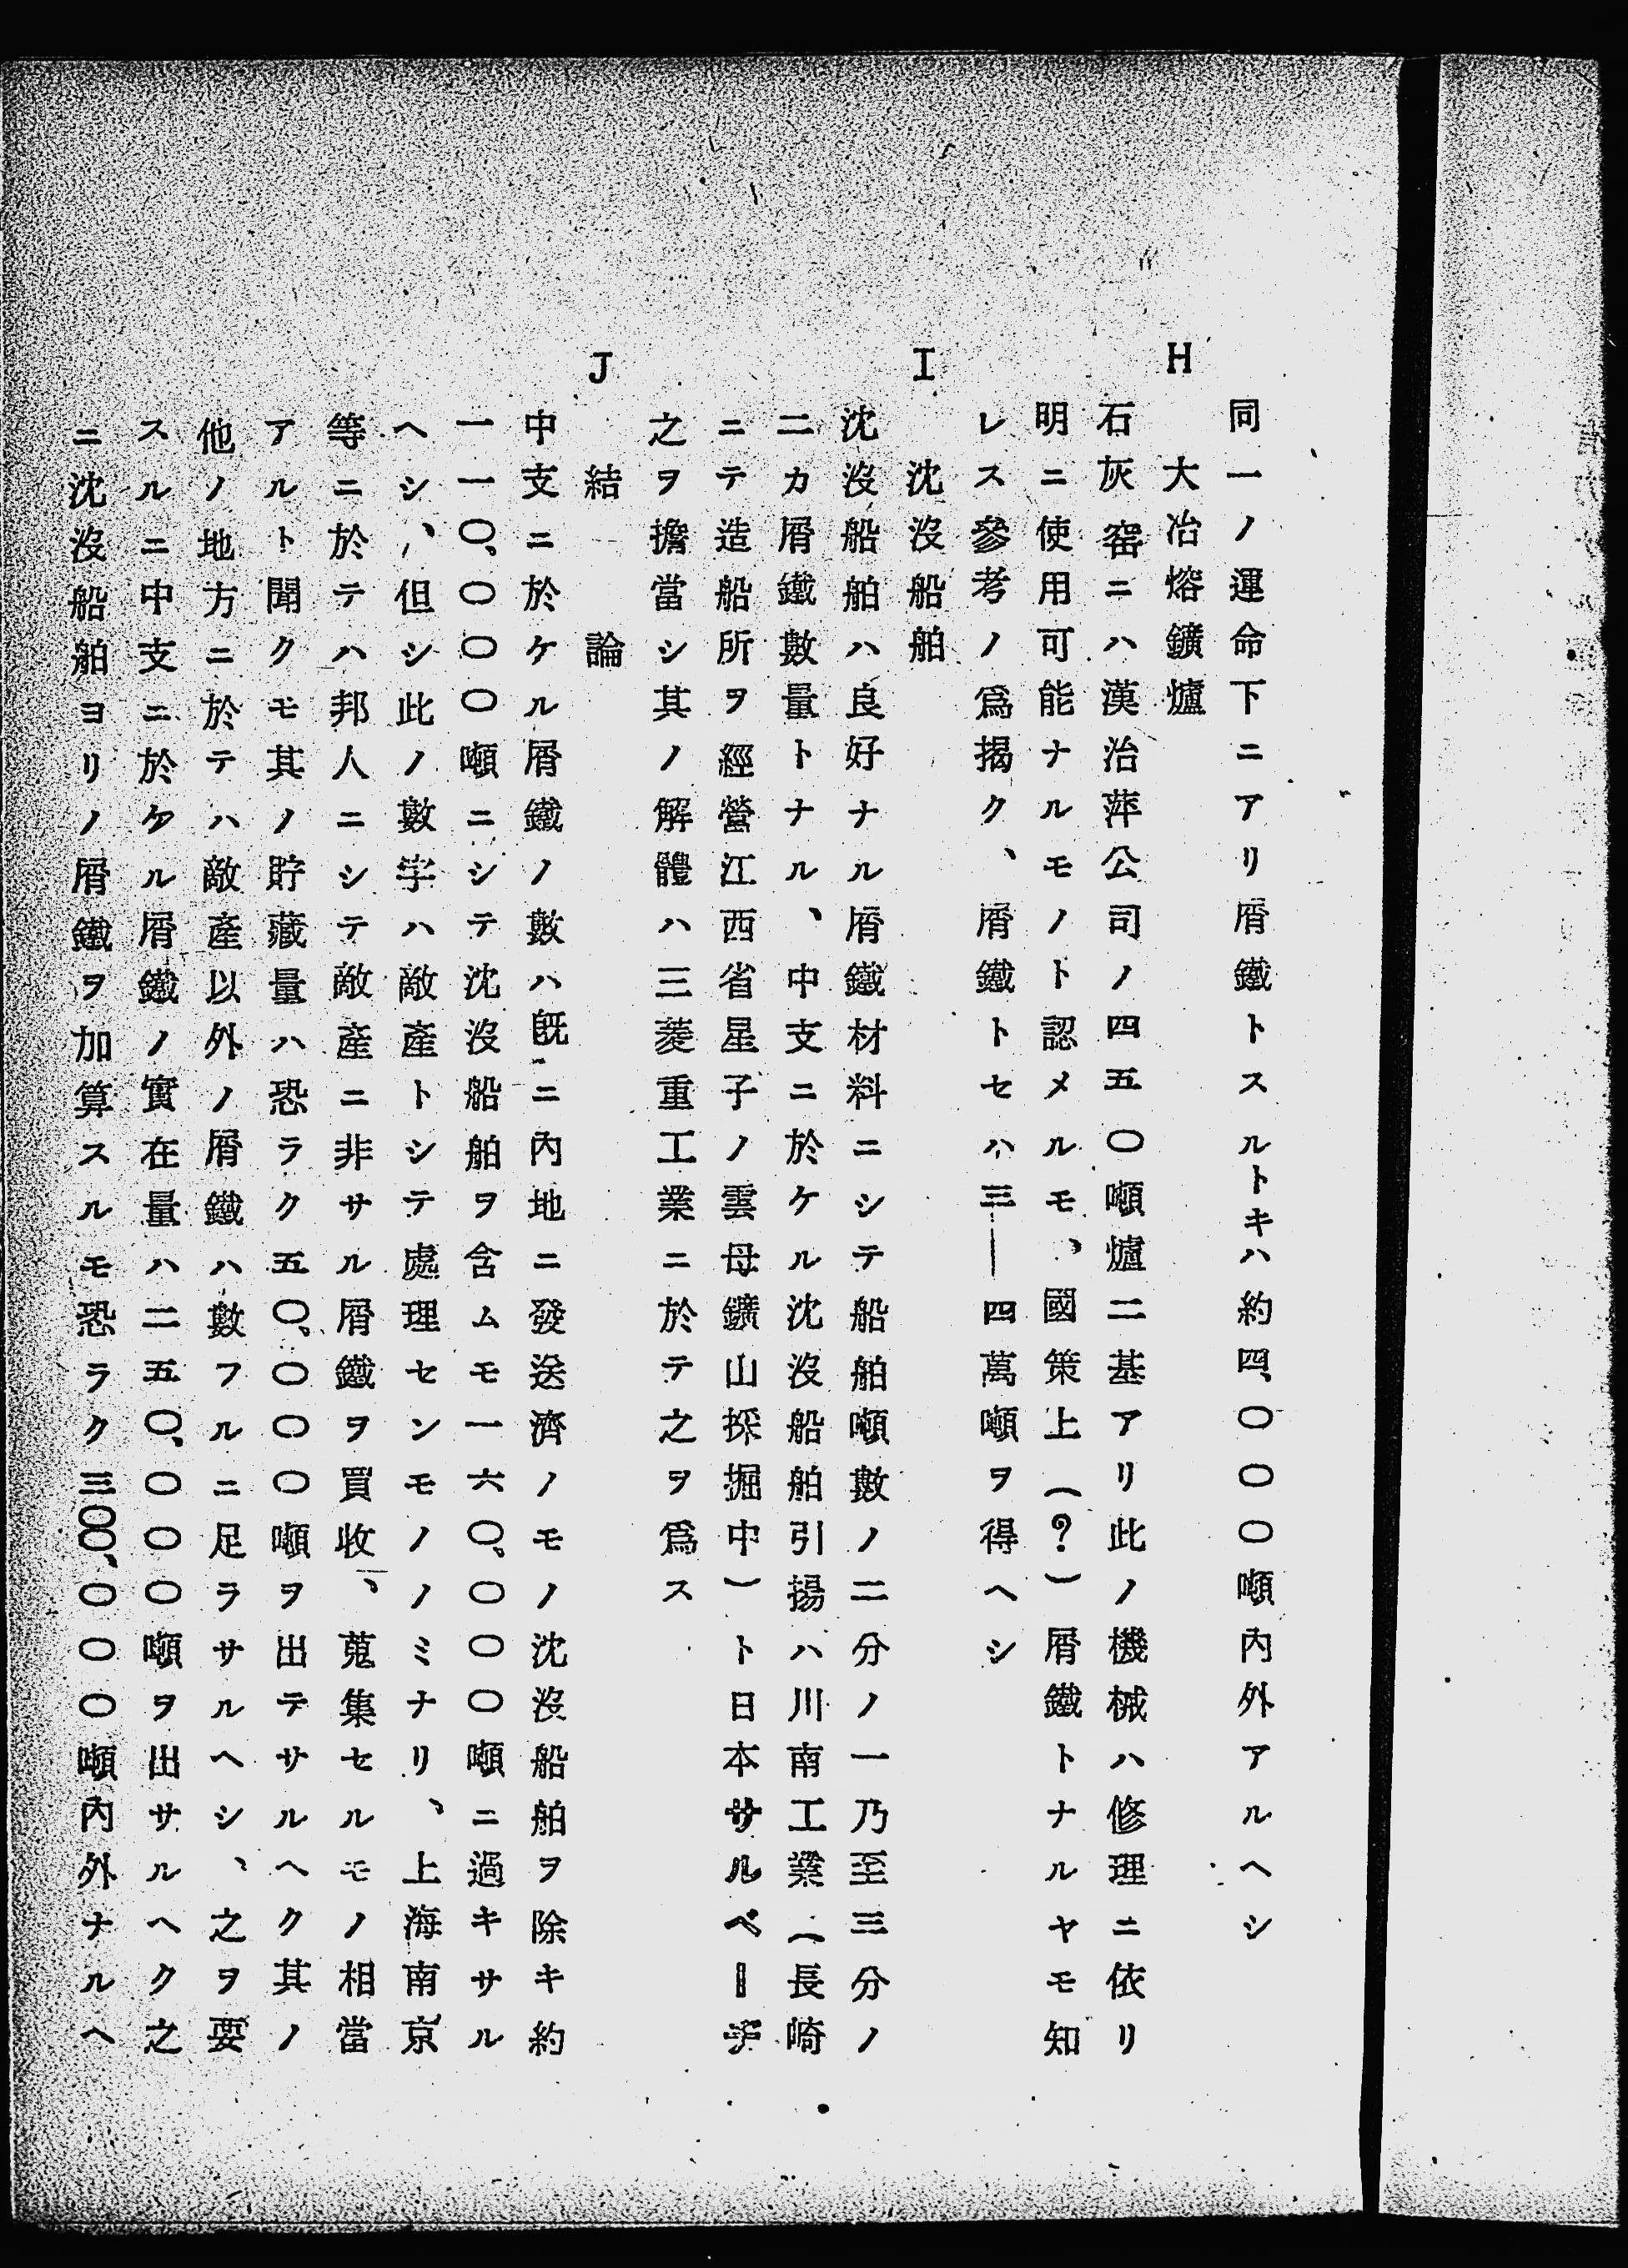 同一ノ運命下ニアリ屑鐵トスルトキハ約四、〇〇〇噸內外アルヘシ
H 大冶熔鑛爐
石灰窰ニハ漢冶萍公司ノ四五〇噸爐二基アリ此ノ機械ハ修理ニ依リ
明ニ使用可能ナルモノト認メルモ、國策上(?)屑鐵トナルヤモ知
レス參考ノ爲揭ク、屑鐵トセハ三—四萬噸ヲ得ヘシ
I 沈沒船舶
沈沒船舶ハ良好ナル屑鐵材料ニシテ船舶噸數ノ二分ノ一乃至三分ノ
二カ屑鐵數量トナル、中支ニ於ケル沈沒船舶引揚ハ川南工業(長崎
ニテ造船所ヲ經營江西省星子ノ雲母鑛山採掘中)ト日本サルベーヂ
之ヲ擔當シ其ノ解體ハ三菱重工業ニ於テ之ヲ爲ス
J 結論
中支ニ於ケル屑鐵ノ數ハ既ニ內地ニ發送濟ノモノ沈沒船舶ヲ除キ約
一一〇、〇〇〇噸ニシテ沈沒船舶ヲ含ムモ一六〇、〇〇〇噸ニ過キサル
ヘシ、但シ此ノ數字ハ敵產トシテ處理センモノノミナリ、上海南京
等ニ於テハ邦人ニシテ敵產ニ非サル屑鐵ヲ買收、蒐集セルモノ相當
アルト聞クモ其ノ貯藏量ハ恐ラク五〇、〇〇〇噸ヲ出テサルヘク其ノ
他ノ地方ニ於テハ敵產以外ノ屑鐵ハ數フルニ足ラサルヘシ、之ヲ要
スルニ中支ニ於ケル屑鐵ノ實在量ハ二五〇、〇〇〇噸ヲ出サルヘク之
ニ沈沒船舶ヨリノ屑鐵ヲ加算スルモ恐ラク三〇〇、〇〇〇噸內外ナルヘ